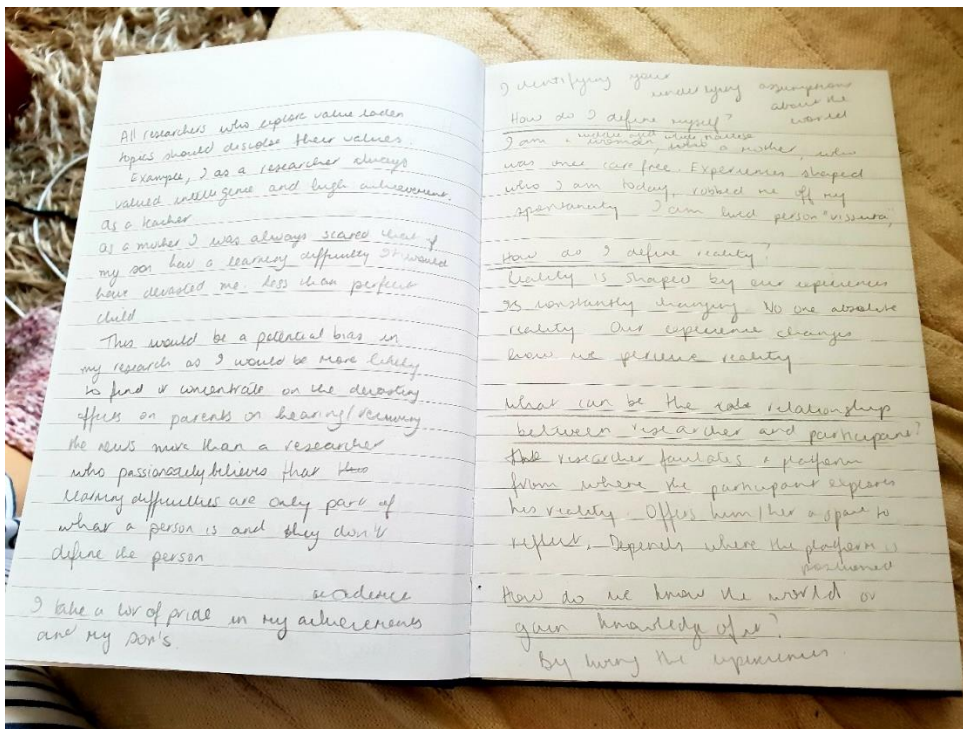 All researchers who explore value laden
topics should disclose their values.
Example, I as a researcher always
valued intelligence and high achievement.
as a teacher
as a mother I was always scared that if
my son had a learning difficulty it would
have devasted me. Less than perfect
child
This would be a potential bias in
my research as I would be more likely
to find & concentrate on the devasting
effects on parents on hearing/receiving
the news more than a researcher
who passionately believes that
learning difficulties are only part of
what a person is and they don't
define the person
academic
I take a lot of pride in my achievements
and my son's.
Identifying your
underlying assumptions
about the
world
How do I define myself?
middle aged white
I am a woman, who a mother, who
was once care free. Experiences shaped
who I am today, robbed me off my
spontaneity I am lived person "vissuta",
How do I define reality?
Reality is shaped by our experiences
Is constantly changing. No one absolute
reality Our experience changes
how we perceive reality
What can be the relationship
between researcher and participant?
The researcher facilates a platform
from where the participant explores
his reality. Offers him/her a space to
reflect. Depends where the platform is
positioned
How do we know the world or
gain knowledge of it?
By living the experiences